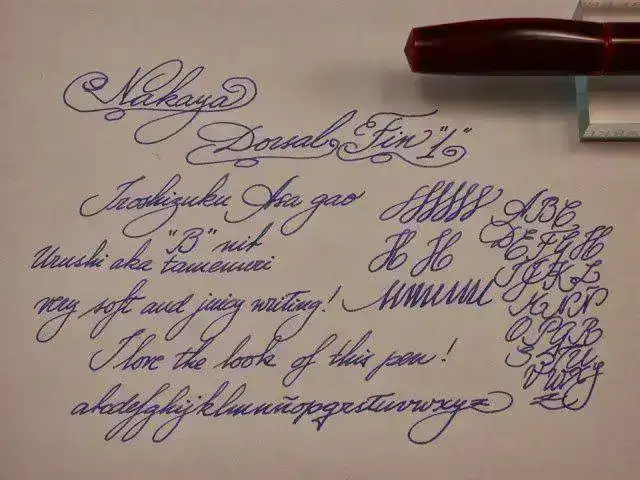 Nakaya
Dorsal Fin "1"
Iroshizuku Asa gao
"B" nib
Urushi aka tamenuri
very soft and juicy writing!
I love the look of this pen!
abcdefghijklmnñopqrstuvwxyz
H H
A B C
D E F G H
I J K L
M N Ñ
O P Q R
S T U
V W X Y
Z